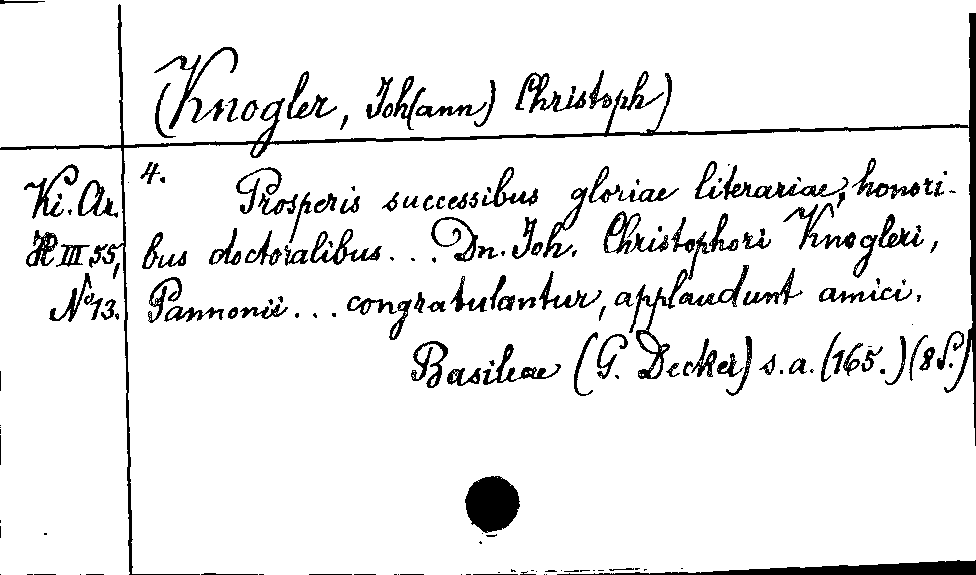 (Knogler, Joh(ann) Christoph)
Ki. Ar.
H III 55,
No 13.
4.
Prosperis successibus gloriae literariae, honori-
bus doctoralibus... Dn. Joh. Christophori Knogleri,
Pannonii... congratulantur, applaudunt amici.
Basileae (G. Decker) s.a. (165.) (8 S.)